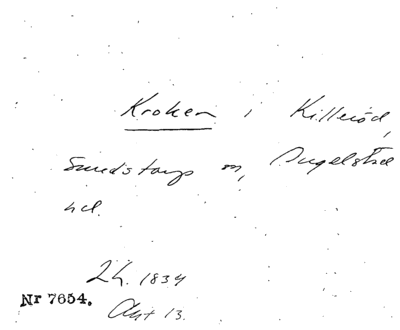 Kroken i Killeröd,
Smedstorps sn, Ingelstad
hd.
Lh. 1834
Nr 7654.
Akt 13.